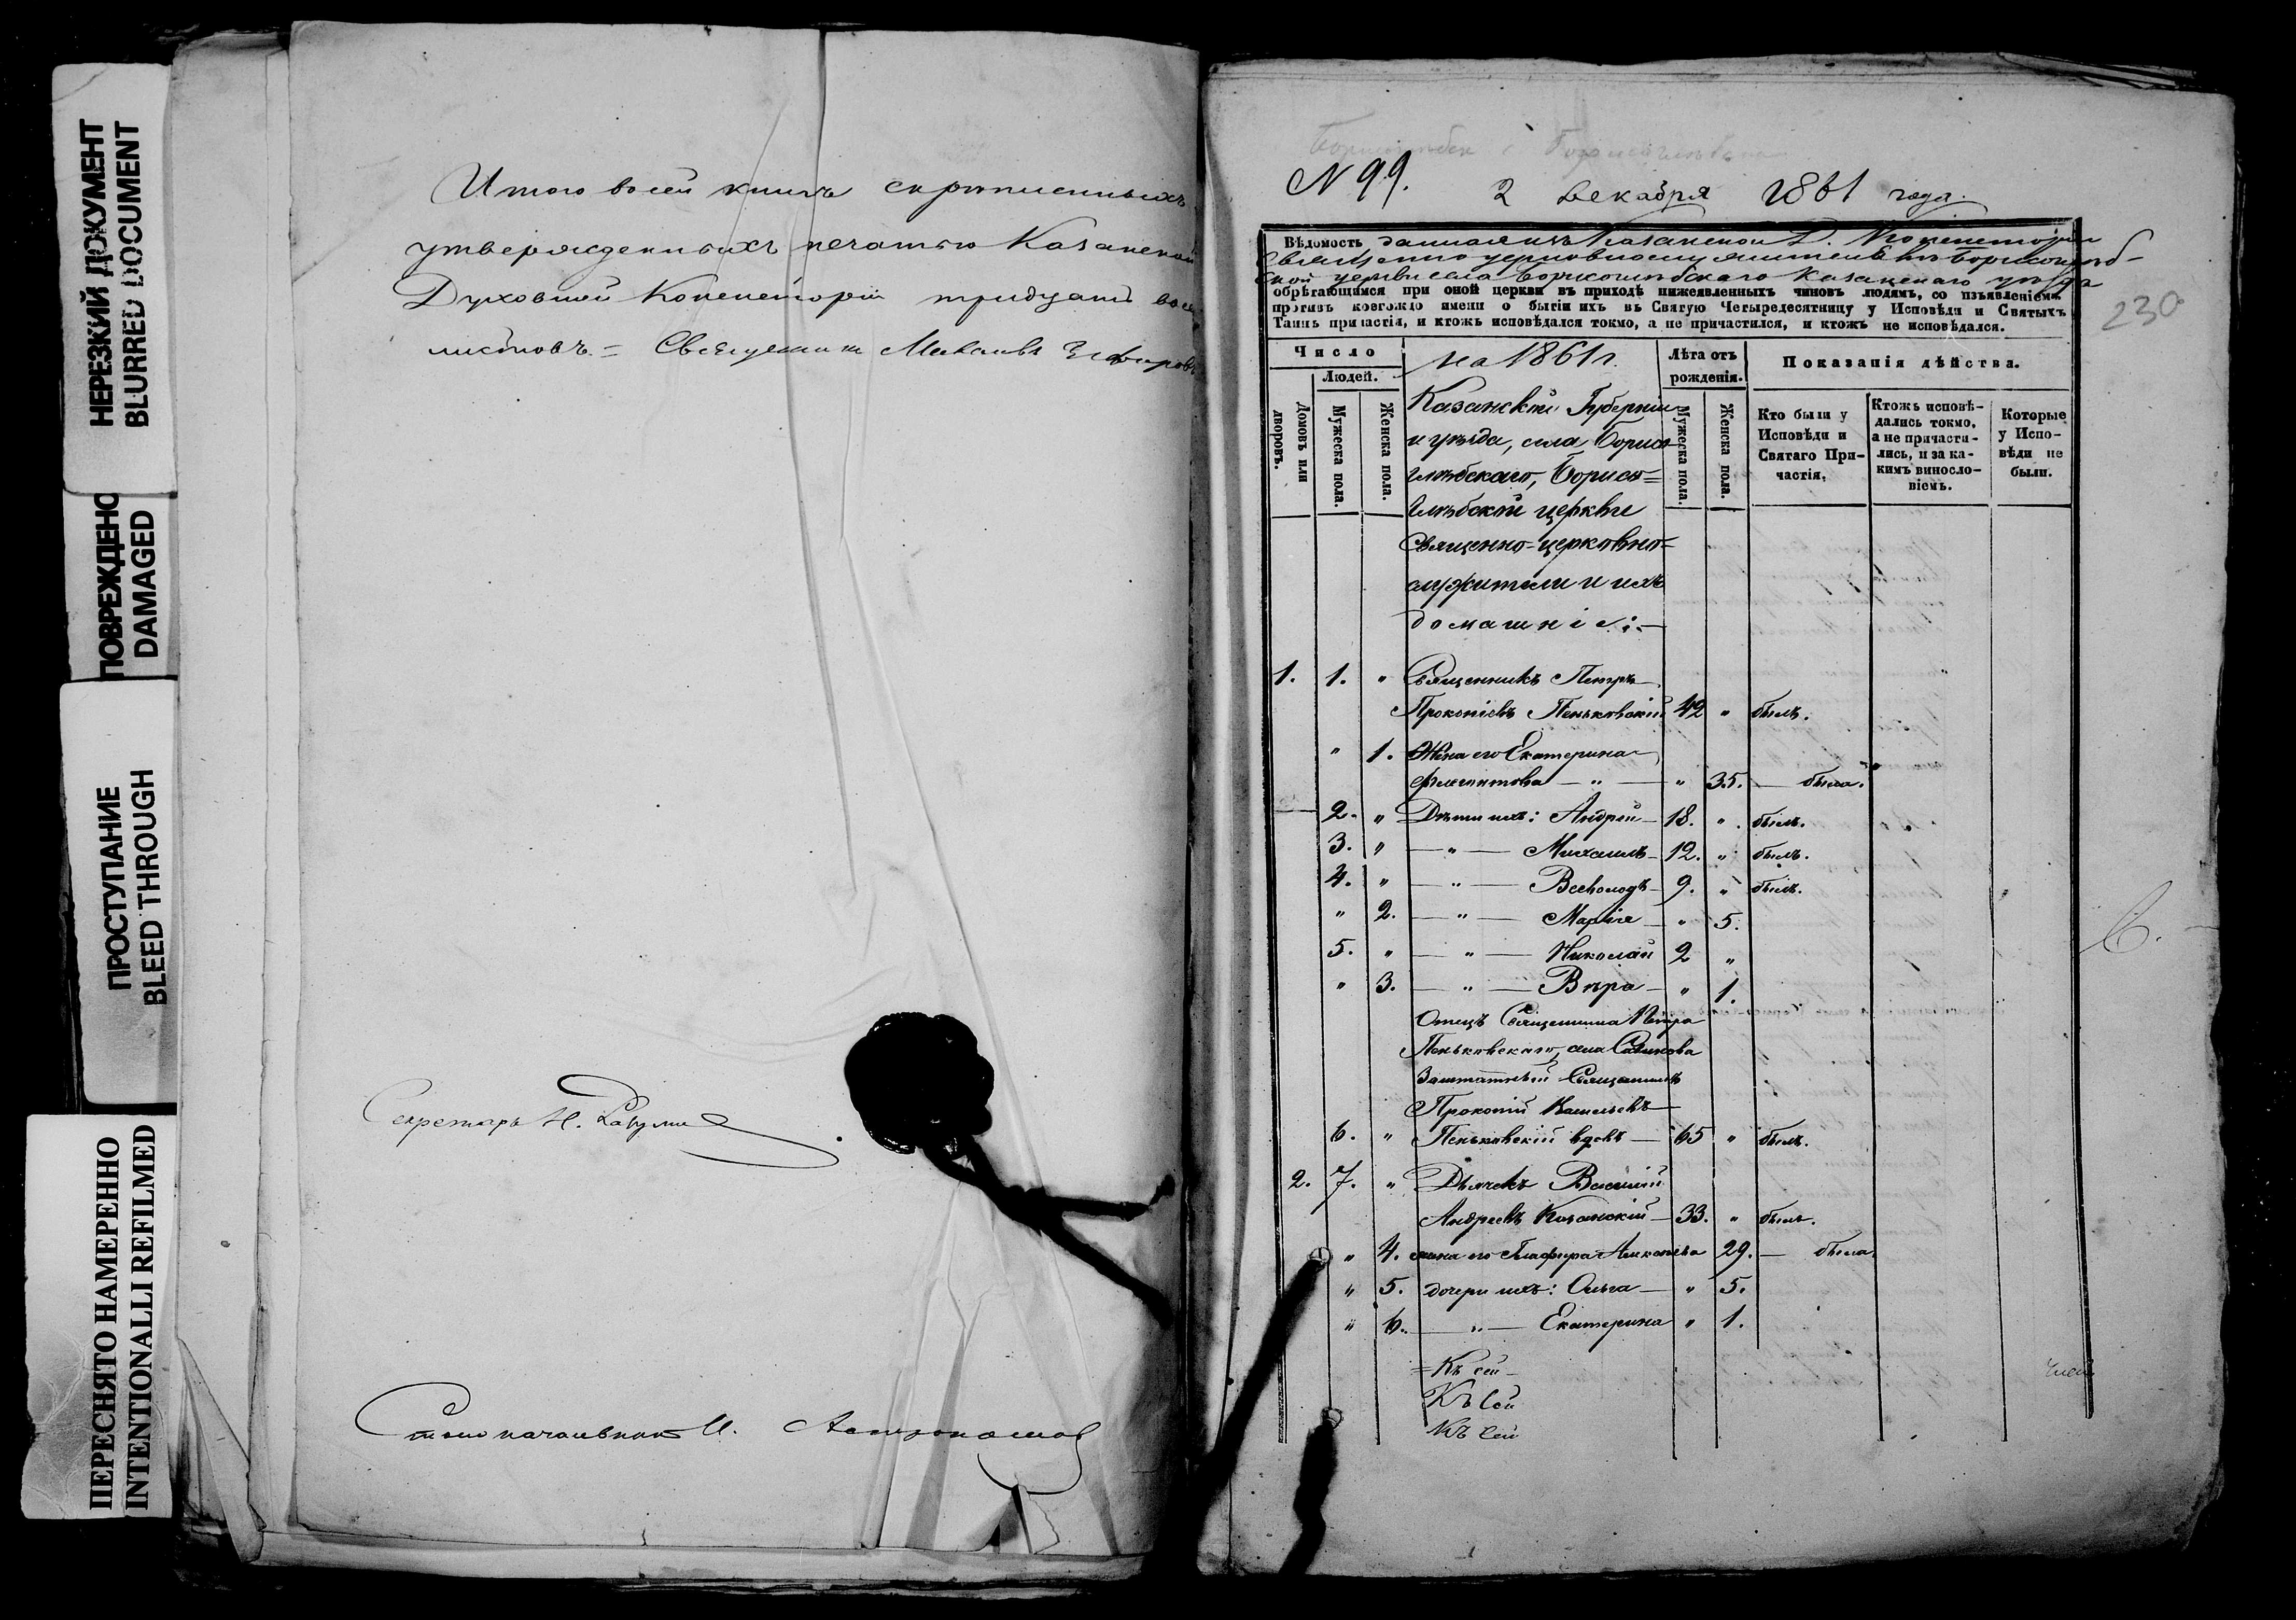 НЕРЕЗКИЙ ДОКУМЕНТ
BLURRED DOCUMENT
ПОВРЕЖДЕНО
DAMAGED
ПРОСТУПАНИЕ
BLEED THROUGH
ПЕРЕСНЯТО НАМЕРЕННО
INTENTIONALLI REFILMED
Итого всей книгѣ скрѣпленныхъ
утвержденныхъ печатью Казанской
Духовной Консисторіи тридцать
листовъ. = Священникъ Михаилъ
Секретарь Н.
Столоначальникъ И. Астрономов
N 99. 2 Декабря 1861 года.
230
Вѣдомость данная изъ Казанской Д. Консисторіи
Священно церковнослужителямъ Борисоглѣб-
ской церкви села Борисоглѣбскаго Казанскаго уѣзда
обрѣтающимся при оной церкви въ приходѣ нижеявленныхъ чиновъ людямъ, со изъявленіемъ
противъ коегождо имени о бытіи ихъ въ Святую Четыредесятницу у Исповѣди и Святыхъ
Таинъ причастія, и ктожъ исповѣдался токмо, а не причастился, и ктожъ не исповѣдался.
Число
Людей.
Домовъ или дворовъ.
Мужеска пола.
Женска пола.
на 1861 г.
Лѣта отъ рожденія.
Мужеска пола.
Женска пола.
Показанія дѣйства.
Кто были у Исповѣди и Святаго Причастія.
Ктожъ исповѣ-
дались токмо,
а не причасти-
лись, и за ка-
кимъ винословіемъ.
Которые у Испо-
вѣди не были.
Казанской Губерніи
и уѣзда, села Борисо
глѣбскаго, Борисо=
глѣбской церкви
Священно-церковно=
служители и ихъ
домашніе: —
1. 1. " Священникъ Петръ
Прокопіевъ Пеньковскій 42 " былъ.
" 1. Жена его Екатерина
Филиптова — " — " 35. — была.
2. " Дѣти ихъ: Андрей — 18. " былъ.
3. " — " — Михаилъ — 12. " былъ.
4. " — " — Всеволодъ — 9. " былъ.
" 2. — " — Марія — " 5.
5. " — " — Николай 2 "
" 3. — " — Вѣра — " 1.
Отецъ Священника Петра
Пеньковскаго, села
Заштатный Священникъ
Прокопій Васильевъ
6. " Пеньковскій вдовъ — 65 " былъ.
2. 7. " Дьячекъ Василій
Андреевъ Казанскій — 33. " былъ.
" 4. жена его Глафира 29. — была.
" 5. дочери ихъ: Ольга — " 5.
" 6. — " — Екатерина " 1.
= Къ сей
Къ сей
Къ сей